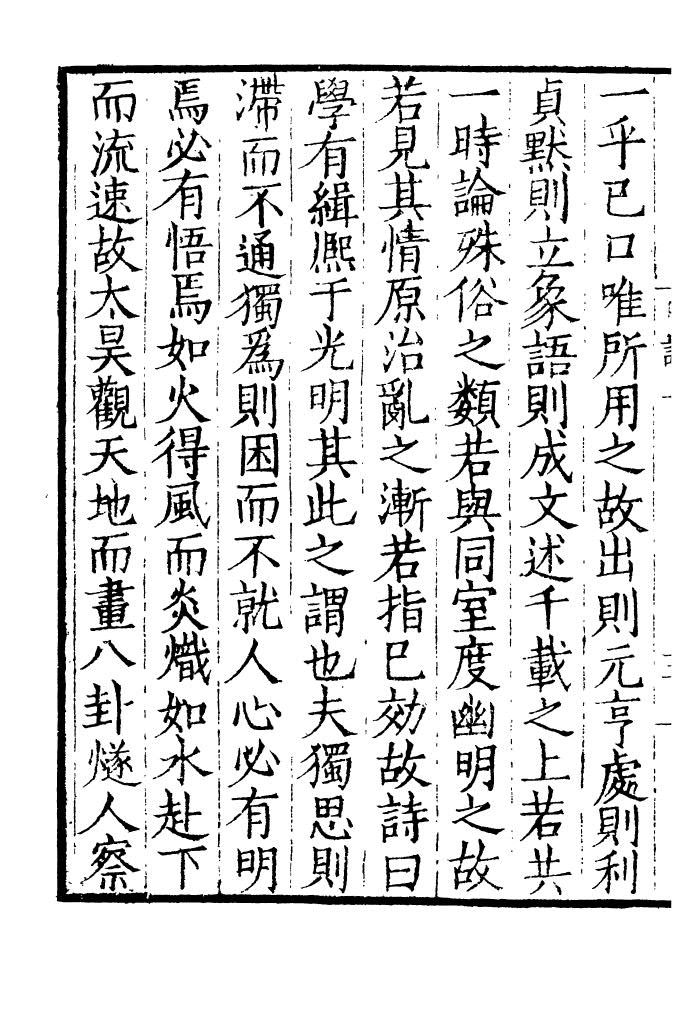 一乎已口唯所用之故出則元亨處則利
貞默則立象語則成文述千載之上若共
一時論殊俗之類若與同室度幽明之故
若見其情原治亂之漸若指已効故詩曰
學有緝熈于光明其此之謂也夫獨思則
滯而不通獨爲則困而不就人心必有明
焉必有悟焉如火得風而炎熾如水赴下
而流速故太昊觀天地而畫八卦燧人察